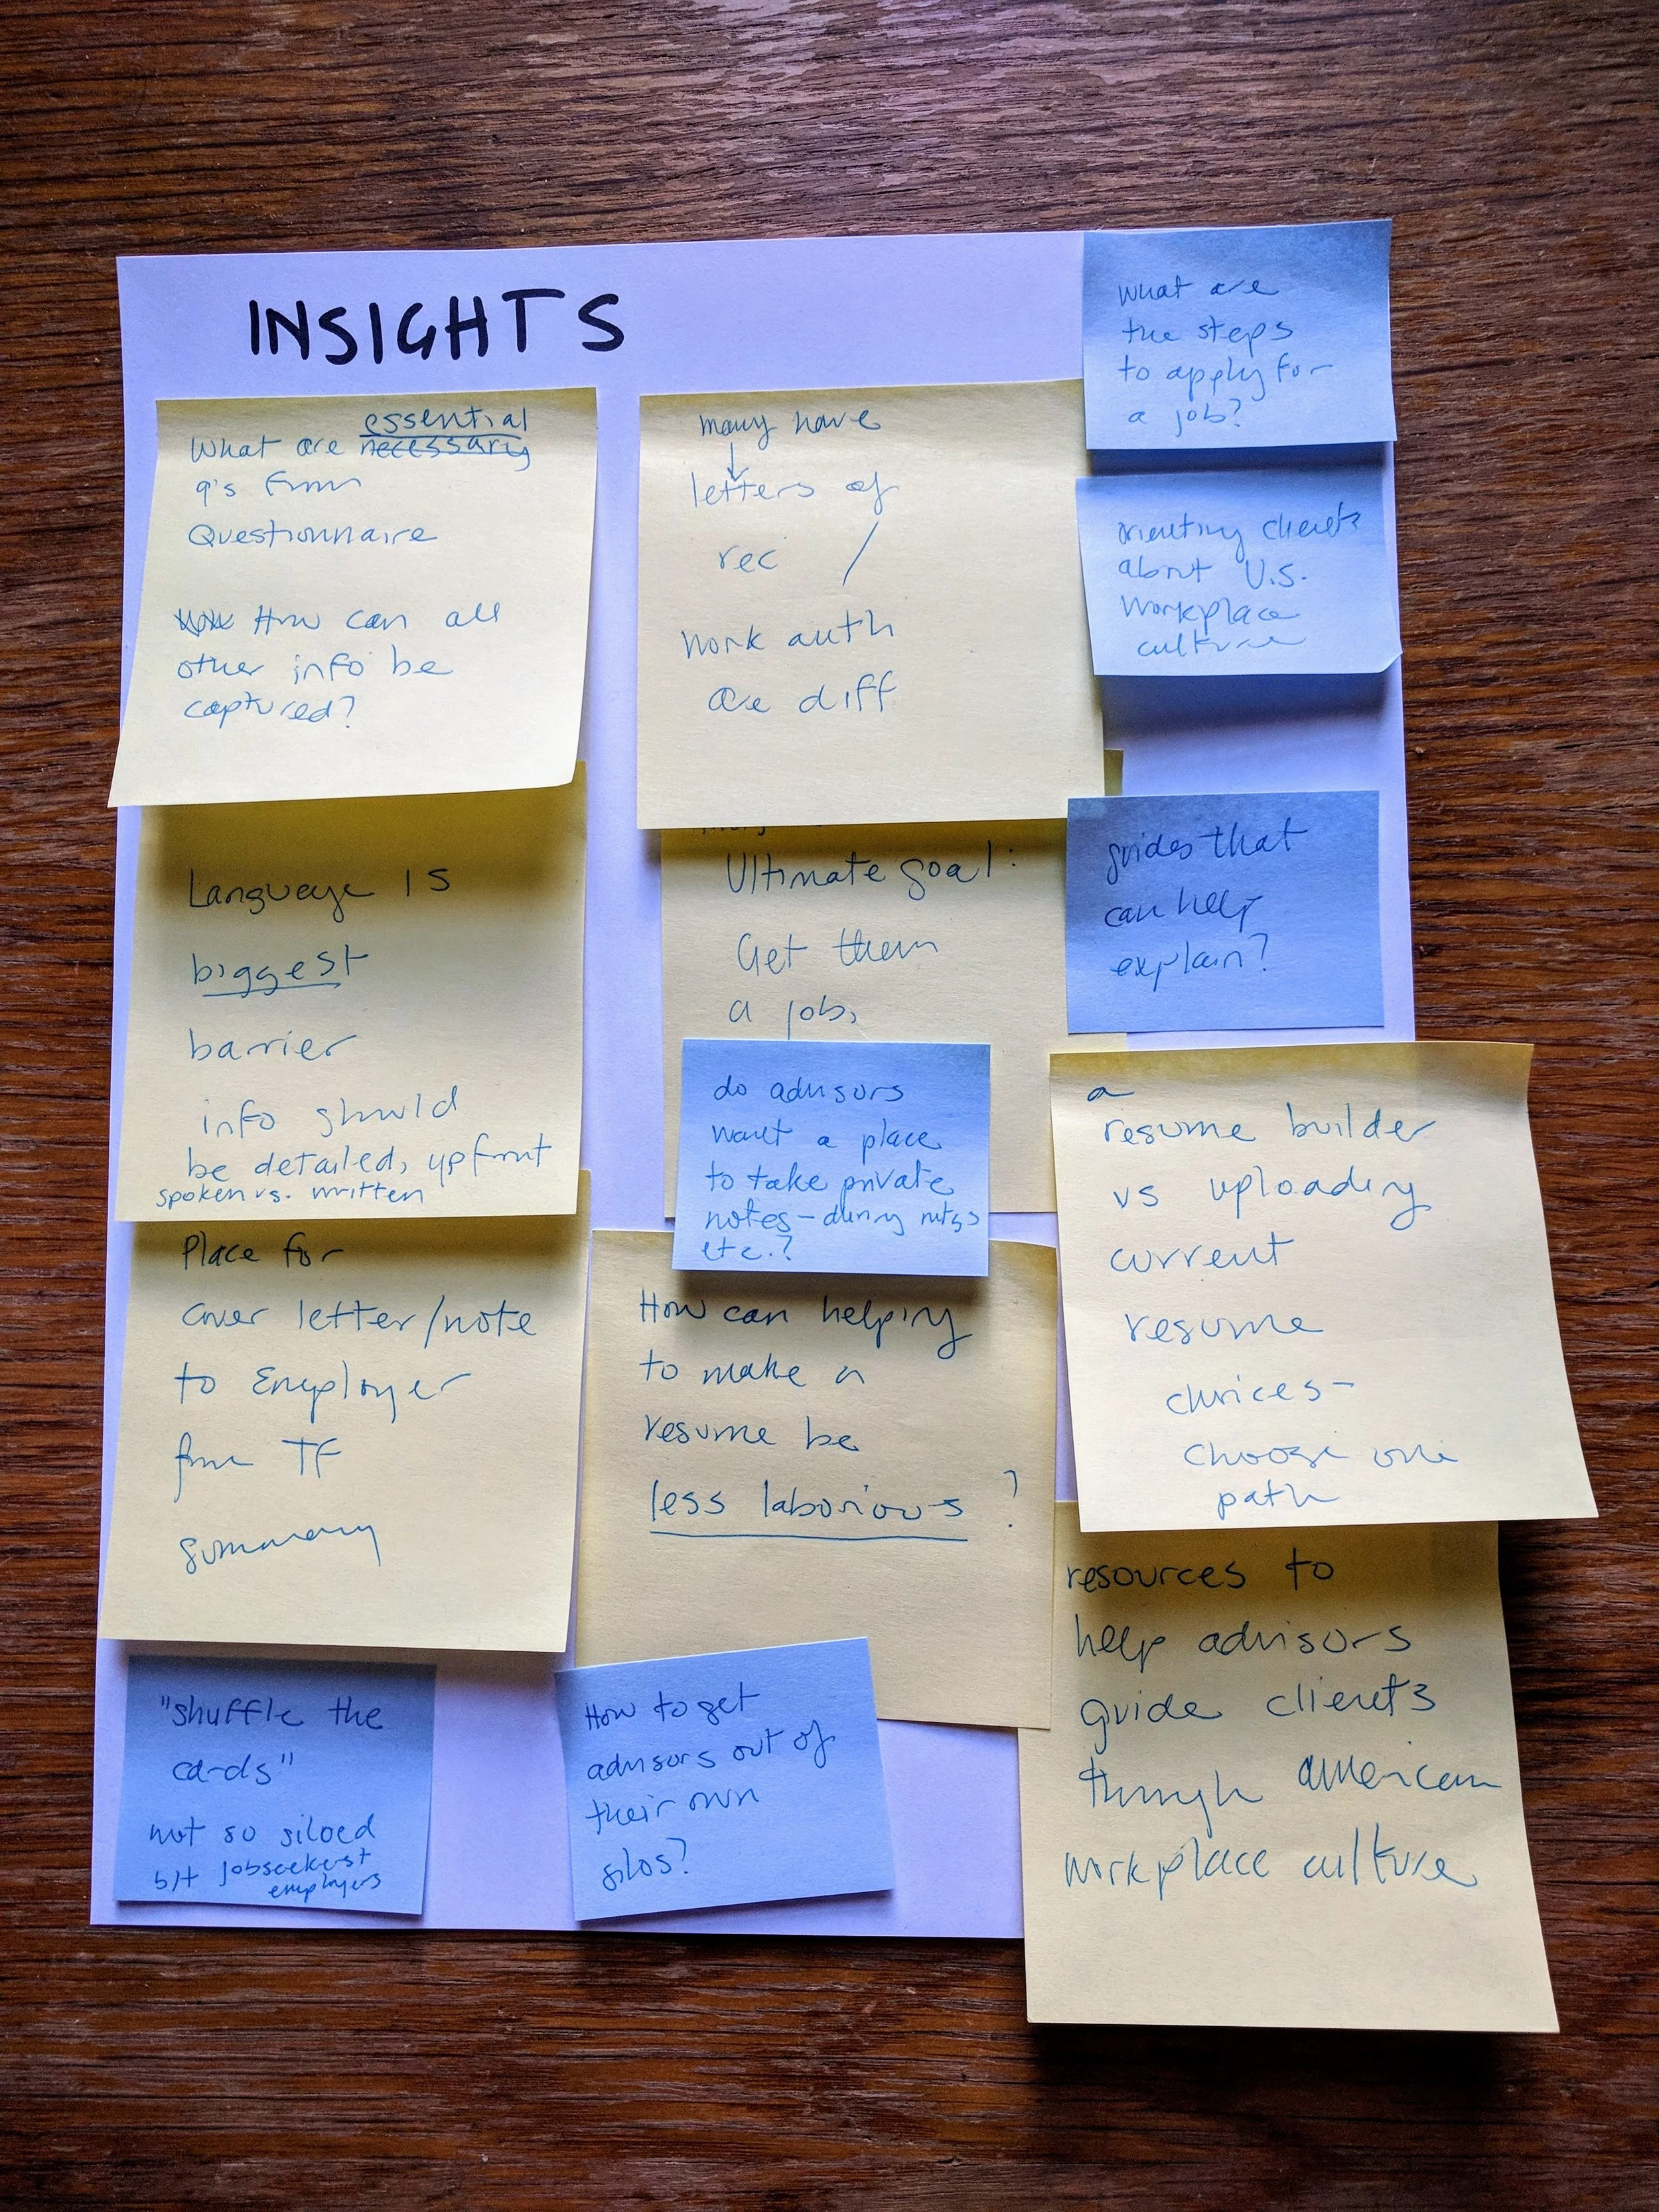 INSIGHTS
essential
What are necessary
q's from
Questionnaire
How can all
other info be
captured?
many have
letters of
rec /
work auth
are diff
What are
the steps
to apply for
a job?
orienting clients
about U.S.
workplace
culture
Language is
biggest
barrier
info should
be detailed, upfront
spoken vs. written
Ultimate goal:
Get them
a job,
guides that
can help
explain?
do advisors
want a place
to take private
notes - during mtgs
etc.?
a
resume builder
vs uploading
current
resume
choices-
choose one
path
Place for
cover letter/note
to Employer
from TF
summary
How can helping
to make a
resume be
less laborious ?
resources to
help advisors
guide clients
through american
workplace culture
"shuffle the
cards"
not so siloed
b/t jobseekers +
employers
How to get
advisors out of
their own
silos?